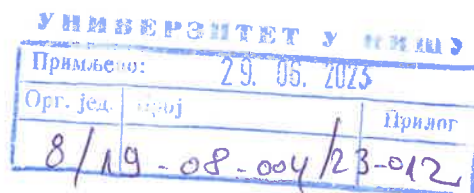 УНИВЕРЗИТЕТ У НИШУ
Примљено: 29. 06. 2023
Орг. јед. Број Прилог
8/19-08-004/23-012